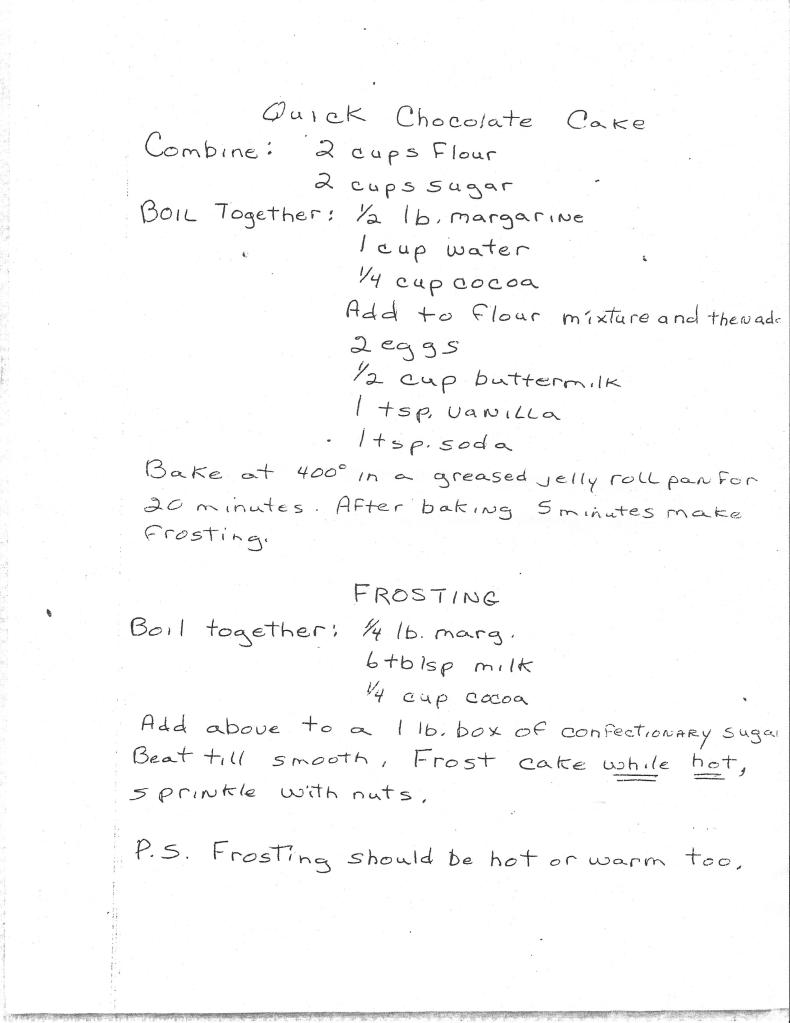 Quick Chocolate Cake
Combine: 2 cups Flour
2 cups sugar
Boil Together: 1/2 lb. margarine
1 cup water
1/4 cup cocoa
Add to flour mixture and then ad
2 eggs
1/2 cup buttermilk
1 tsp. vanilla
1 tsp. soda
Bake at 400° in a greased jelly roll pan for
20 minutes. After baking 5 minutes make
frosting.
FROSTING
Boil together: 1/4 lb. marg.
6 tblsp milk
1/4 cup cocoa
Add above to a 1 lb. box of confectionary suga
Beat till smooth, Frost cake while hot,
sprinkle with nuts.
P.S. Frosting should be hot or warm too.